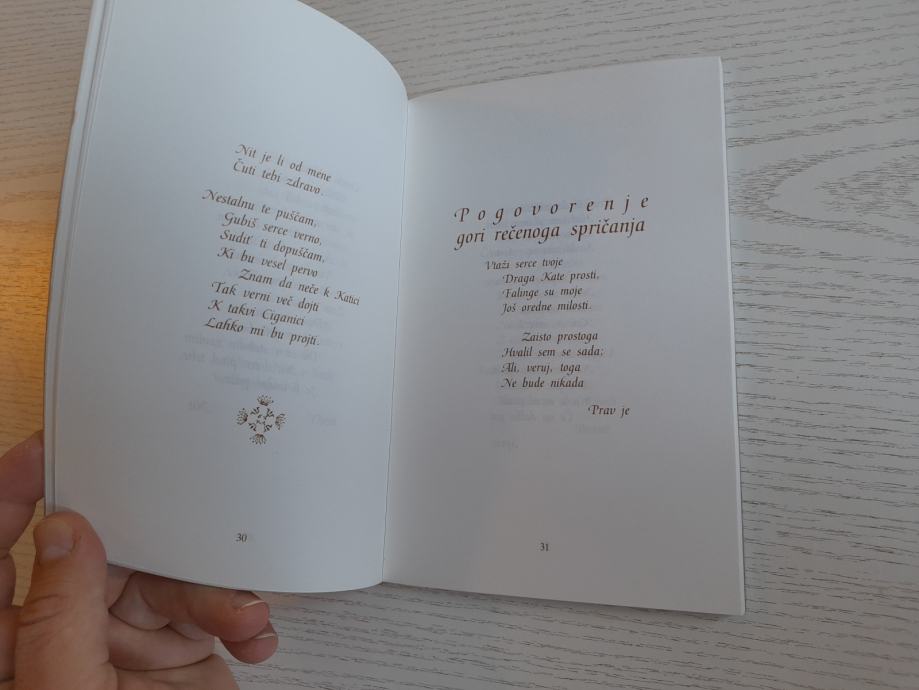 Nit je li od mene
Čuti tebi zdravo.
Nestalnu te puščam,
Gubiš serce verno,
Sudiť ti dopuščam,
Ki bu vesel pervo
Znam da neče k Katici
Tak verni več dojti
K takvi Ciganici
Lahko mi bu projti.
30
Pogovorenje
gori rečenoga spričanja
Vtaži serce tvoje
Draga Kate prosti,
Falinge su moje
Još oredne milosti.
Zaisto prostoga
Hvalil sem se sada;
Ali, veruj, toga
Ne bude nikada
Prav je
31